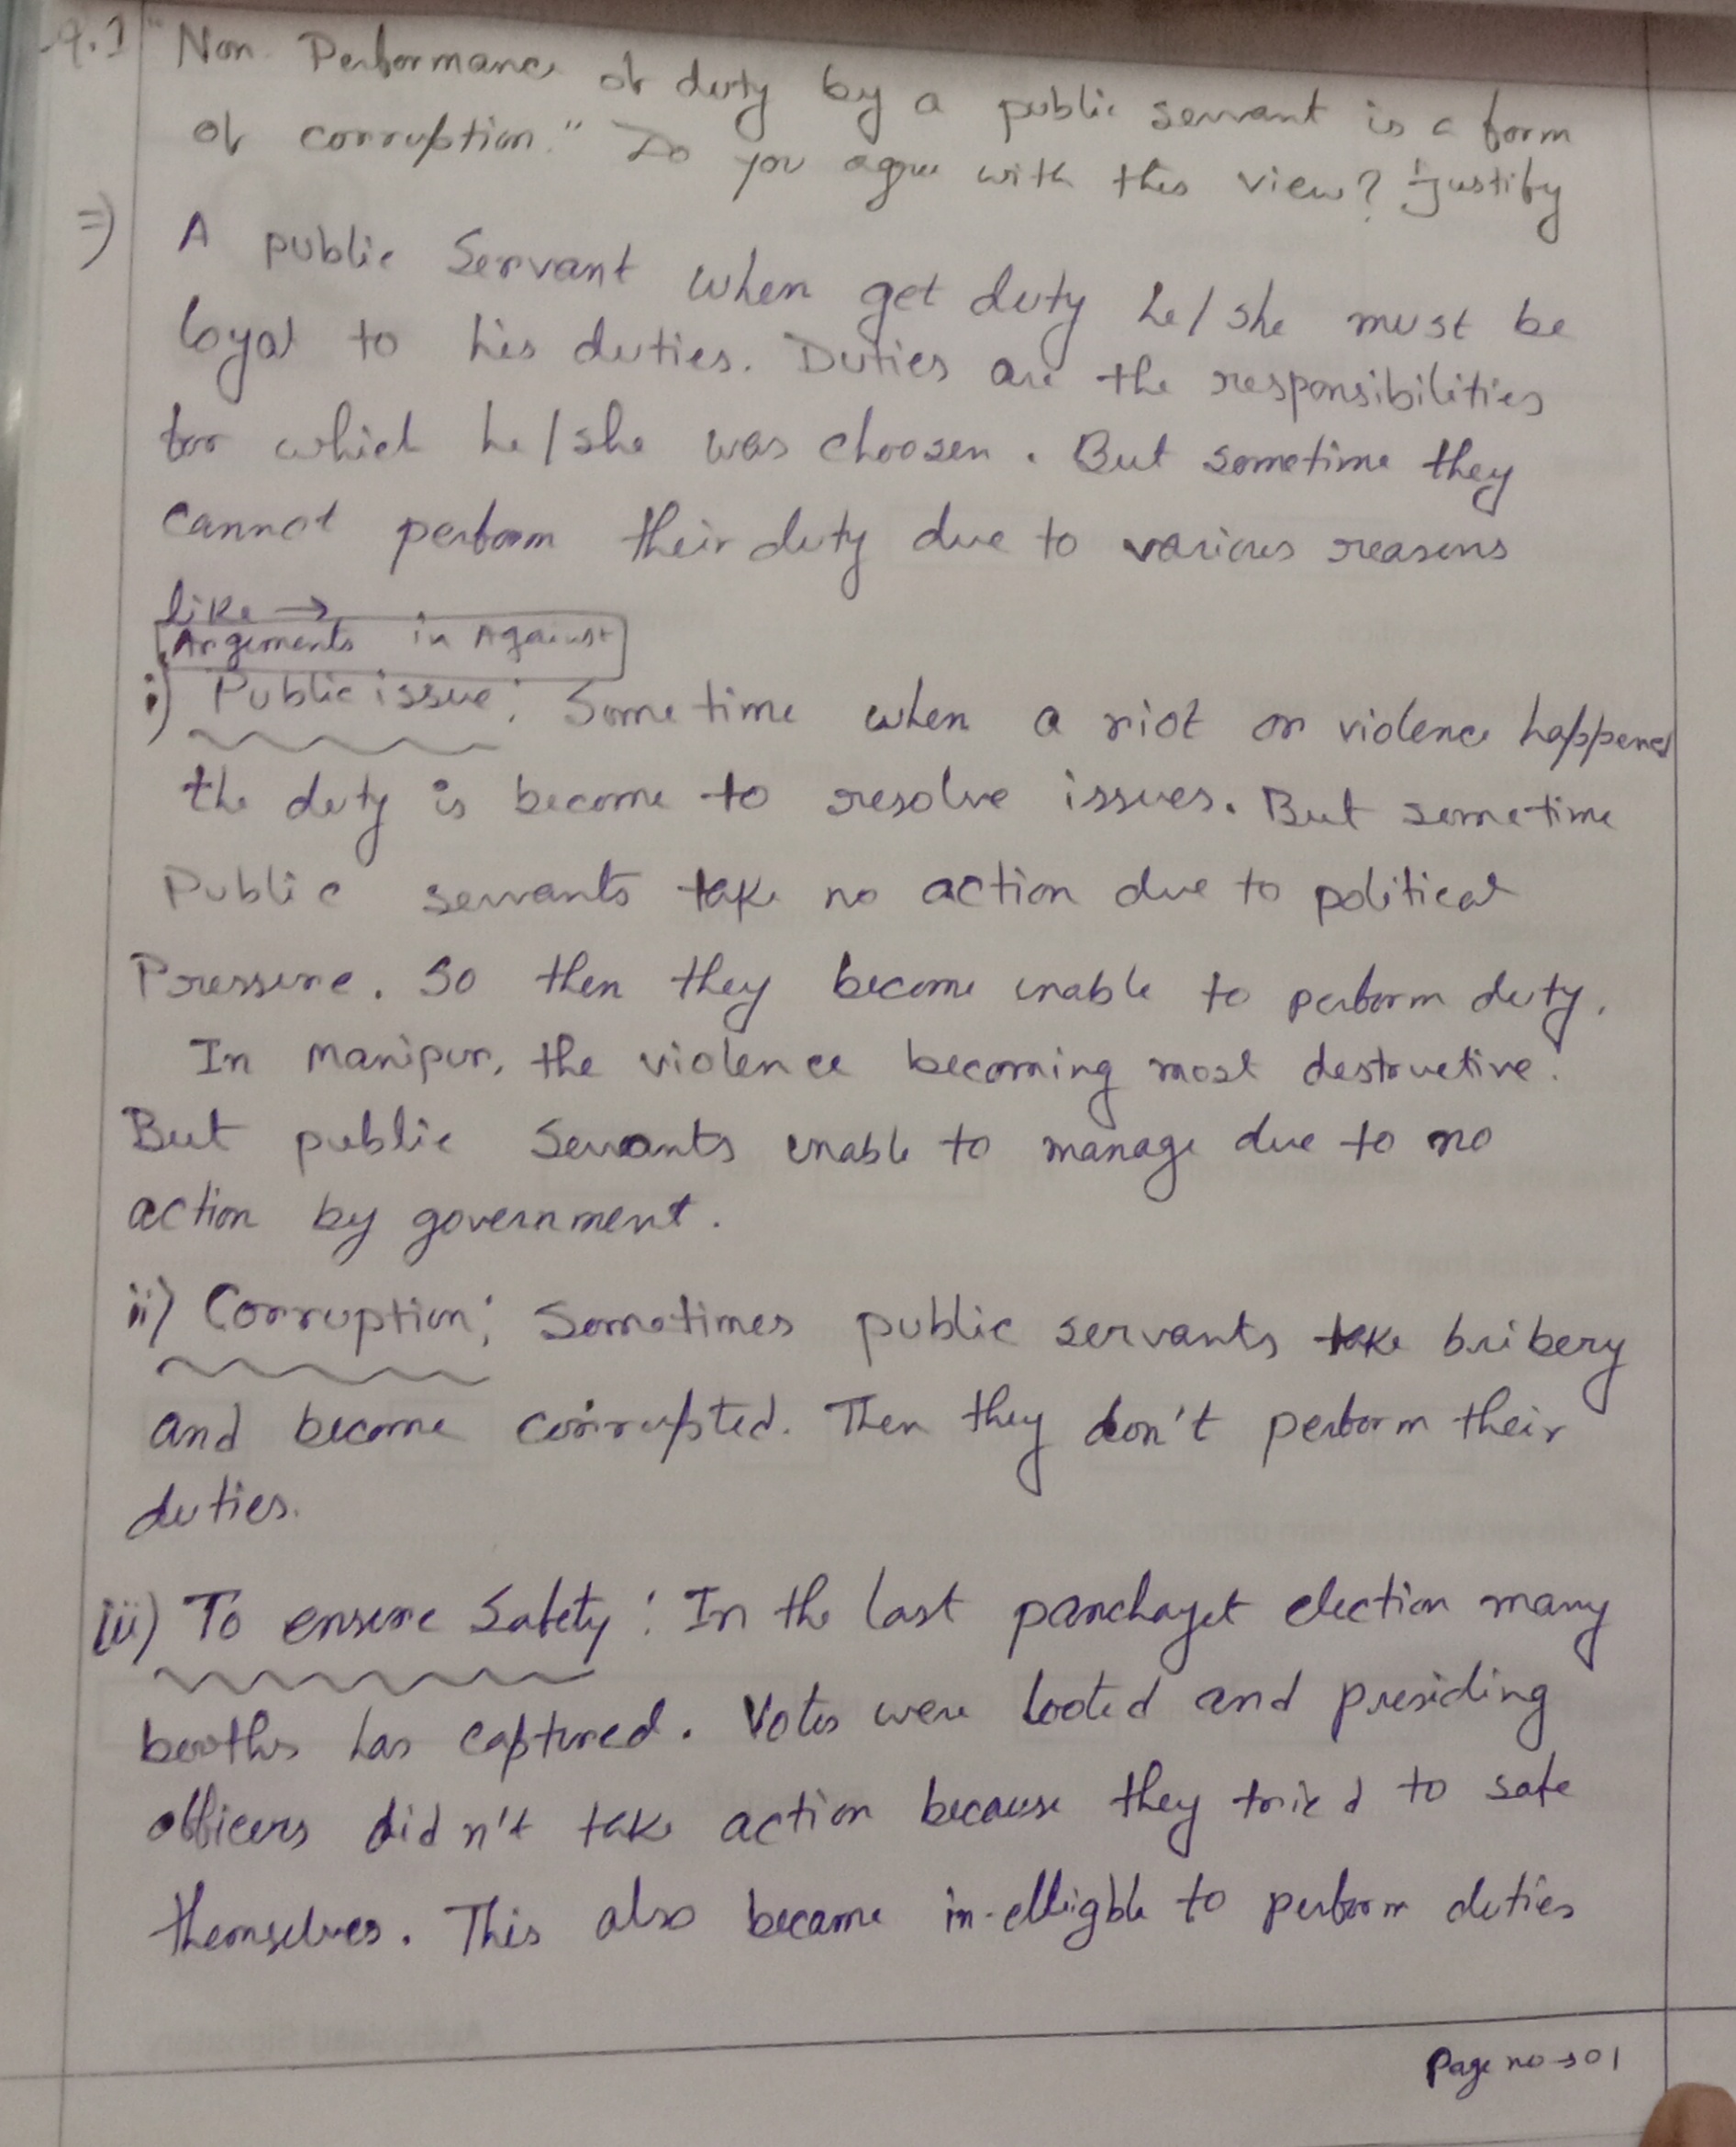 Q.1 "Non Performance of duty by a public servant is a form
of corruption." Do you agree with this view? Justify
⇒) A public Servant when get duty he/she must be
loyal to his duties. Duties are the responsibilities
for which he/she was choosen. But sometime they
cannot perform their duty due to various reasons
like →
Argements in Against
i) Public issue: Sometime when a riot or violence happened
the duty is become to resolve issues. But sometime
Public servants take no action due to political
Pressure. So then they become unable to perform duty.
In Manipur, the violence becoming most destructive.
But public Servants unable to manage due to no
action by government.
ii) Corruption: Sometimes public servants take bribery
and become corrupted. Then they don't perform their
duties.
iii) To ensure Safety: In the last panchayet election many
booths has captured. Votes were looted and presiding
officers didn't take action because they tried to safe
themselves. This also became in-elligble to perform duties
Page no → 01